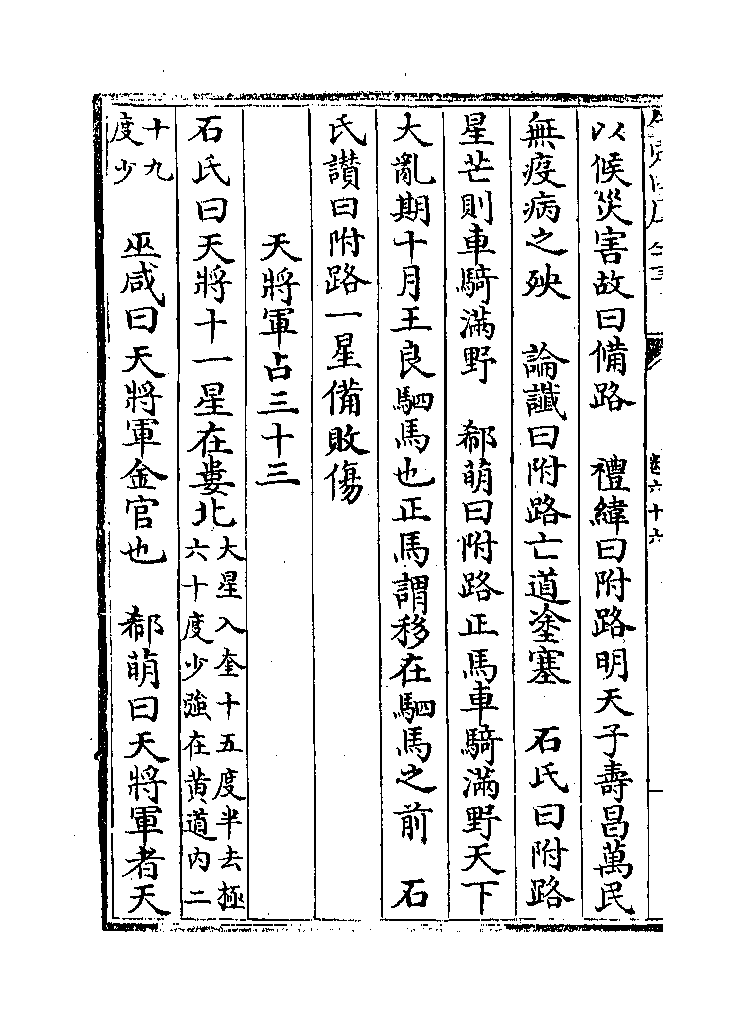 卷六十六
以候災害故曰備路　禮緯曰附路明天子壽昌萬民
無疫病之殃　論讖曰附路亡道塗塞　石氏曰附路
星芒則車騎滿野　郗萌曰附路正馬車騎滿野天下
大亂期十月王良駟馬也正馬謂移在駟馬之前　石
氏讃曰附路一星備敗傷
天將軍占三十三
石氏曰天將十一星在婁北大星入奎十五度半去極六十度少強在黄道内二
十九度少　巫咸曰天將軍金官也　郗萌曰天將軍者天